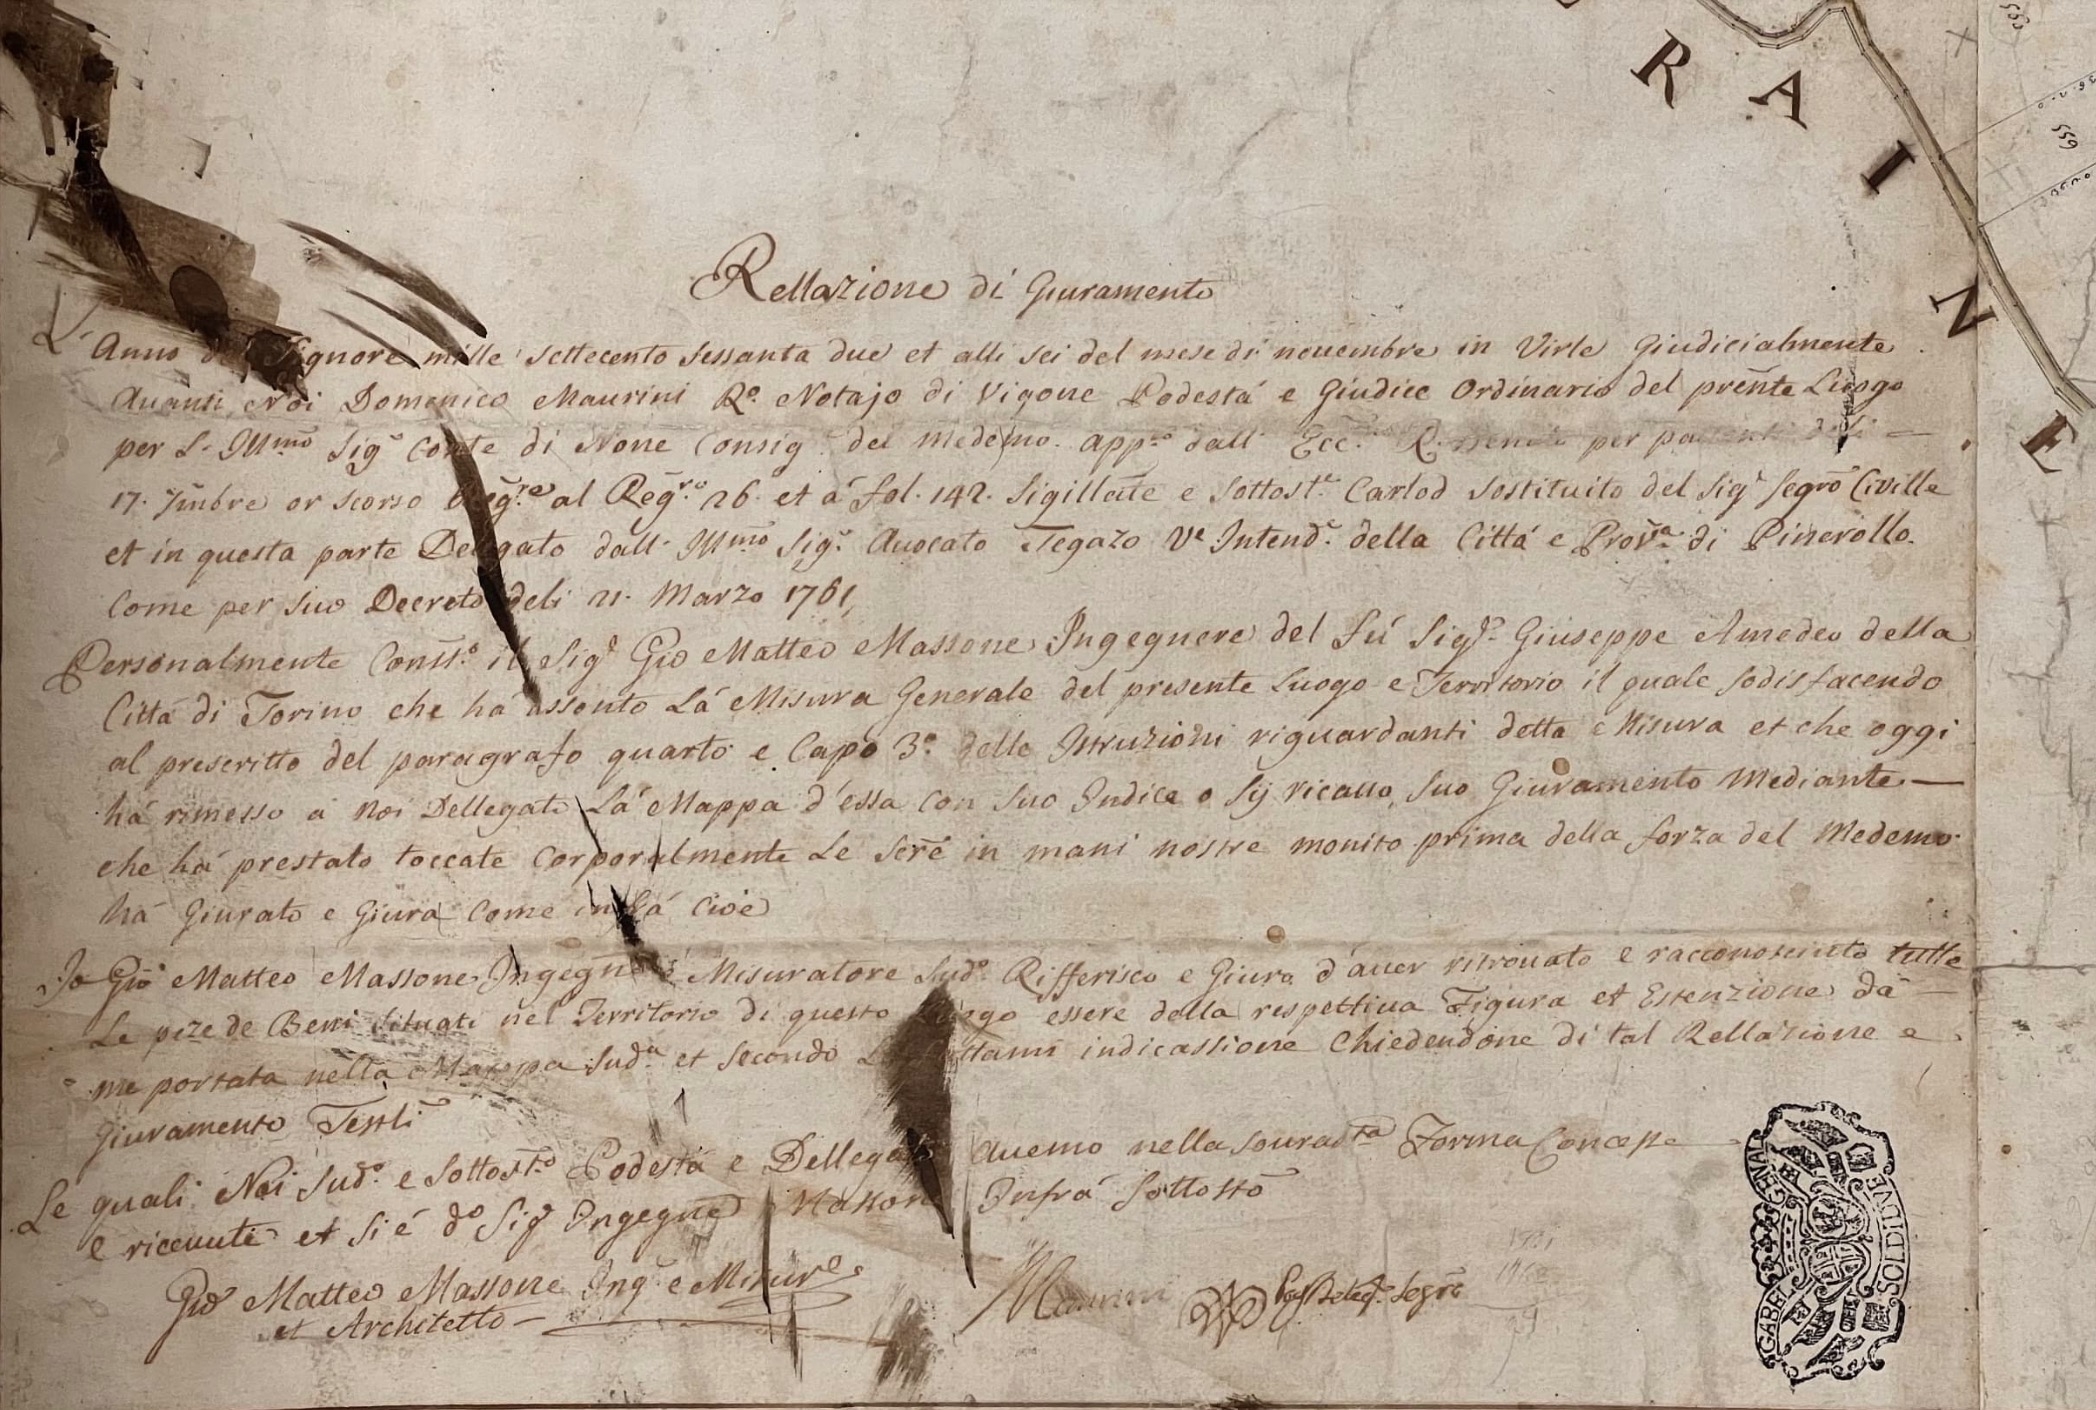 R A I N E
Rellazione di Giuramento
L'Anno del Signore mille settecento sessanta due et alli sei del mese di novembre in Virle Giudicialmente
Auanti Noi Domenico Maurini R.o Notajo di Vigone Podestá e Giudice Ordinario del prẽnte Luogo
per L. Ill.mo Sig.r Conte di None Consig.r del medemo app.to dall' Ecc.mo per pattenti delli
17. 7mbre or scorso al Reg.ro 26. et á fol. 142. Sigillate e Sottost.e Carlod Sostituito del Sig.r Segrõ Civille
et in questa parte Delegato dall. Ill.mo Sig.r Auocato Tegazo V.e Intend.e della Cittá e Prov.a di Pinerollo
Come per suo Decreto deli 21. Marzo 1761,
Personalmente Const.o il Sig.r Gio Matteo Massone Ingegnere del Fú Sig.r Giuseppe Amedeo della
Cittá di Torino che há assonto Lá Misura Generale del presente Luogo e Territorio il quale sodisfacendo
al prescritto del paragrafo quarto e Capo 3.o delle Istruzioni riguardanti detta Misura et che oggi
há rimesso á Noi Dellegato Lá Mappa d'essa Con suo Indice suo Giuramento Mediante
che há prestato toccate Corporalmente Le Scrẽ in mani nostre monito prima della forza del Medemo
há Giurato e Giura Come infrá Cioé
Io Gio Matteo Massone Ingegn.re é Misuratore Sud.o Rifferisco e Giuro d'auer ritrouato e racconosciuto tutte
Le peze de Beni situati nel Territorio di questo Luogo essere della respettiua Figura et Estenzione dá
me portata nella Mappa Sud.a et Secondo indicassione Chiedendone di tal Rellazione e
Giuramento Testli
Le quali Noi Sud.o e Sottost.o Podestá e Dellegato Auemo nella Sourad.ta Forma Concepe
e riceuute et si é d.o Sig.r Ingegne Massone Infrá Sottosto
Gio Matteo Massone Ing.e e Misur.e
et Architetto
Maurini Segrõ
GABEL GENAL
SOLDI DUE
560
559